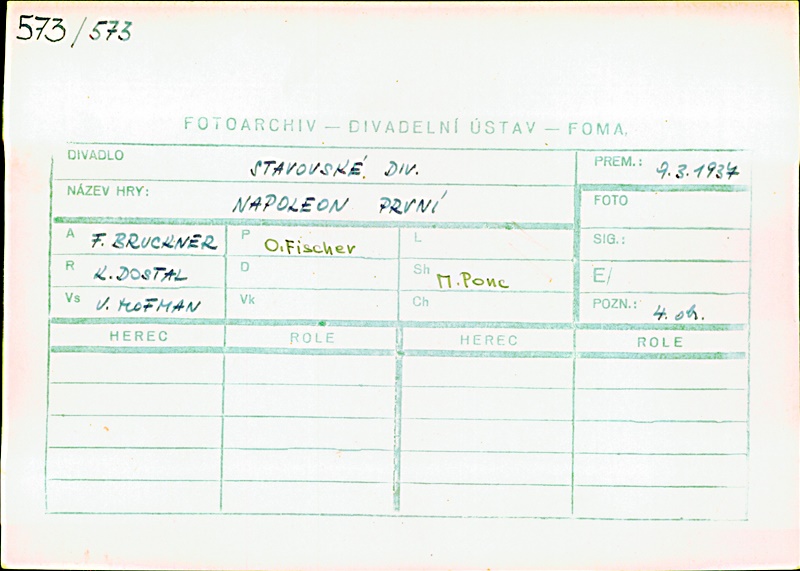 573/573
FOTOARCHIV — DIVADELNÍ ÚSTAV — FOMA.
DIVADLO STAVOVSKÉ DIV. PREM.: 9.3.1937
NÁZEV HRY: NAPOLEON PRVNÍ FOTO
A F. BRUCKNER P O.Fischer L SIG.:
R K. DOSTAL D Sh M.Ponc E/
Vs V. HOFMAN Vk Ch POZN.: 4. ob.
HEREC ROLE HEREC ROLE